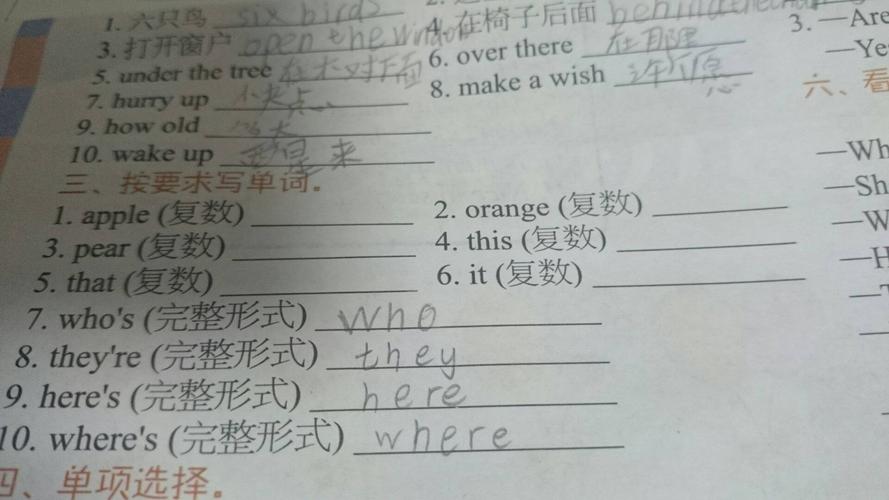 1. 六只鸟 six birds
4. 在椅子后面 behind the chair
3. 打开窗户 open the window
6. over there 在那里
5. under the tree 在木对下面
8. make a wish 许个愿
7. hurry up 小夹点
9. how old 多大
10. wake up 来
三、按要求写单词。
1. apple (复数)
2. orange (复数)
3. pear (复数)
4. this (复数)
5. that (复数)
6. it (复数)
7. who's (完整形式) who
8. they're (完整形式) they
9. here's (完整形式) here
10. where's (完整形式) where
四、单项选择。
3. —Are
—Ye
六、看
—Wh
—Sh
—W
—H